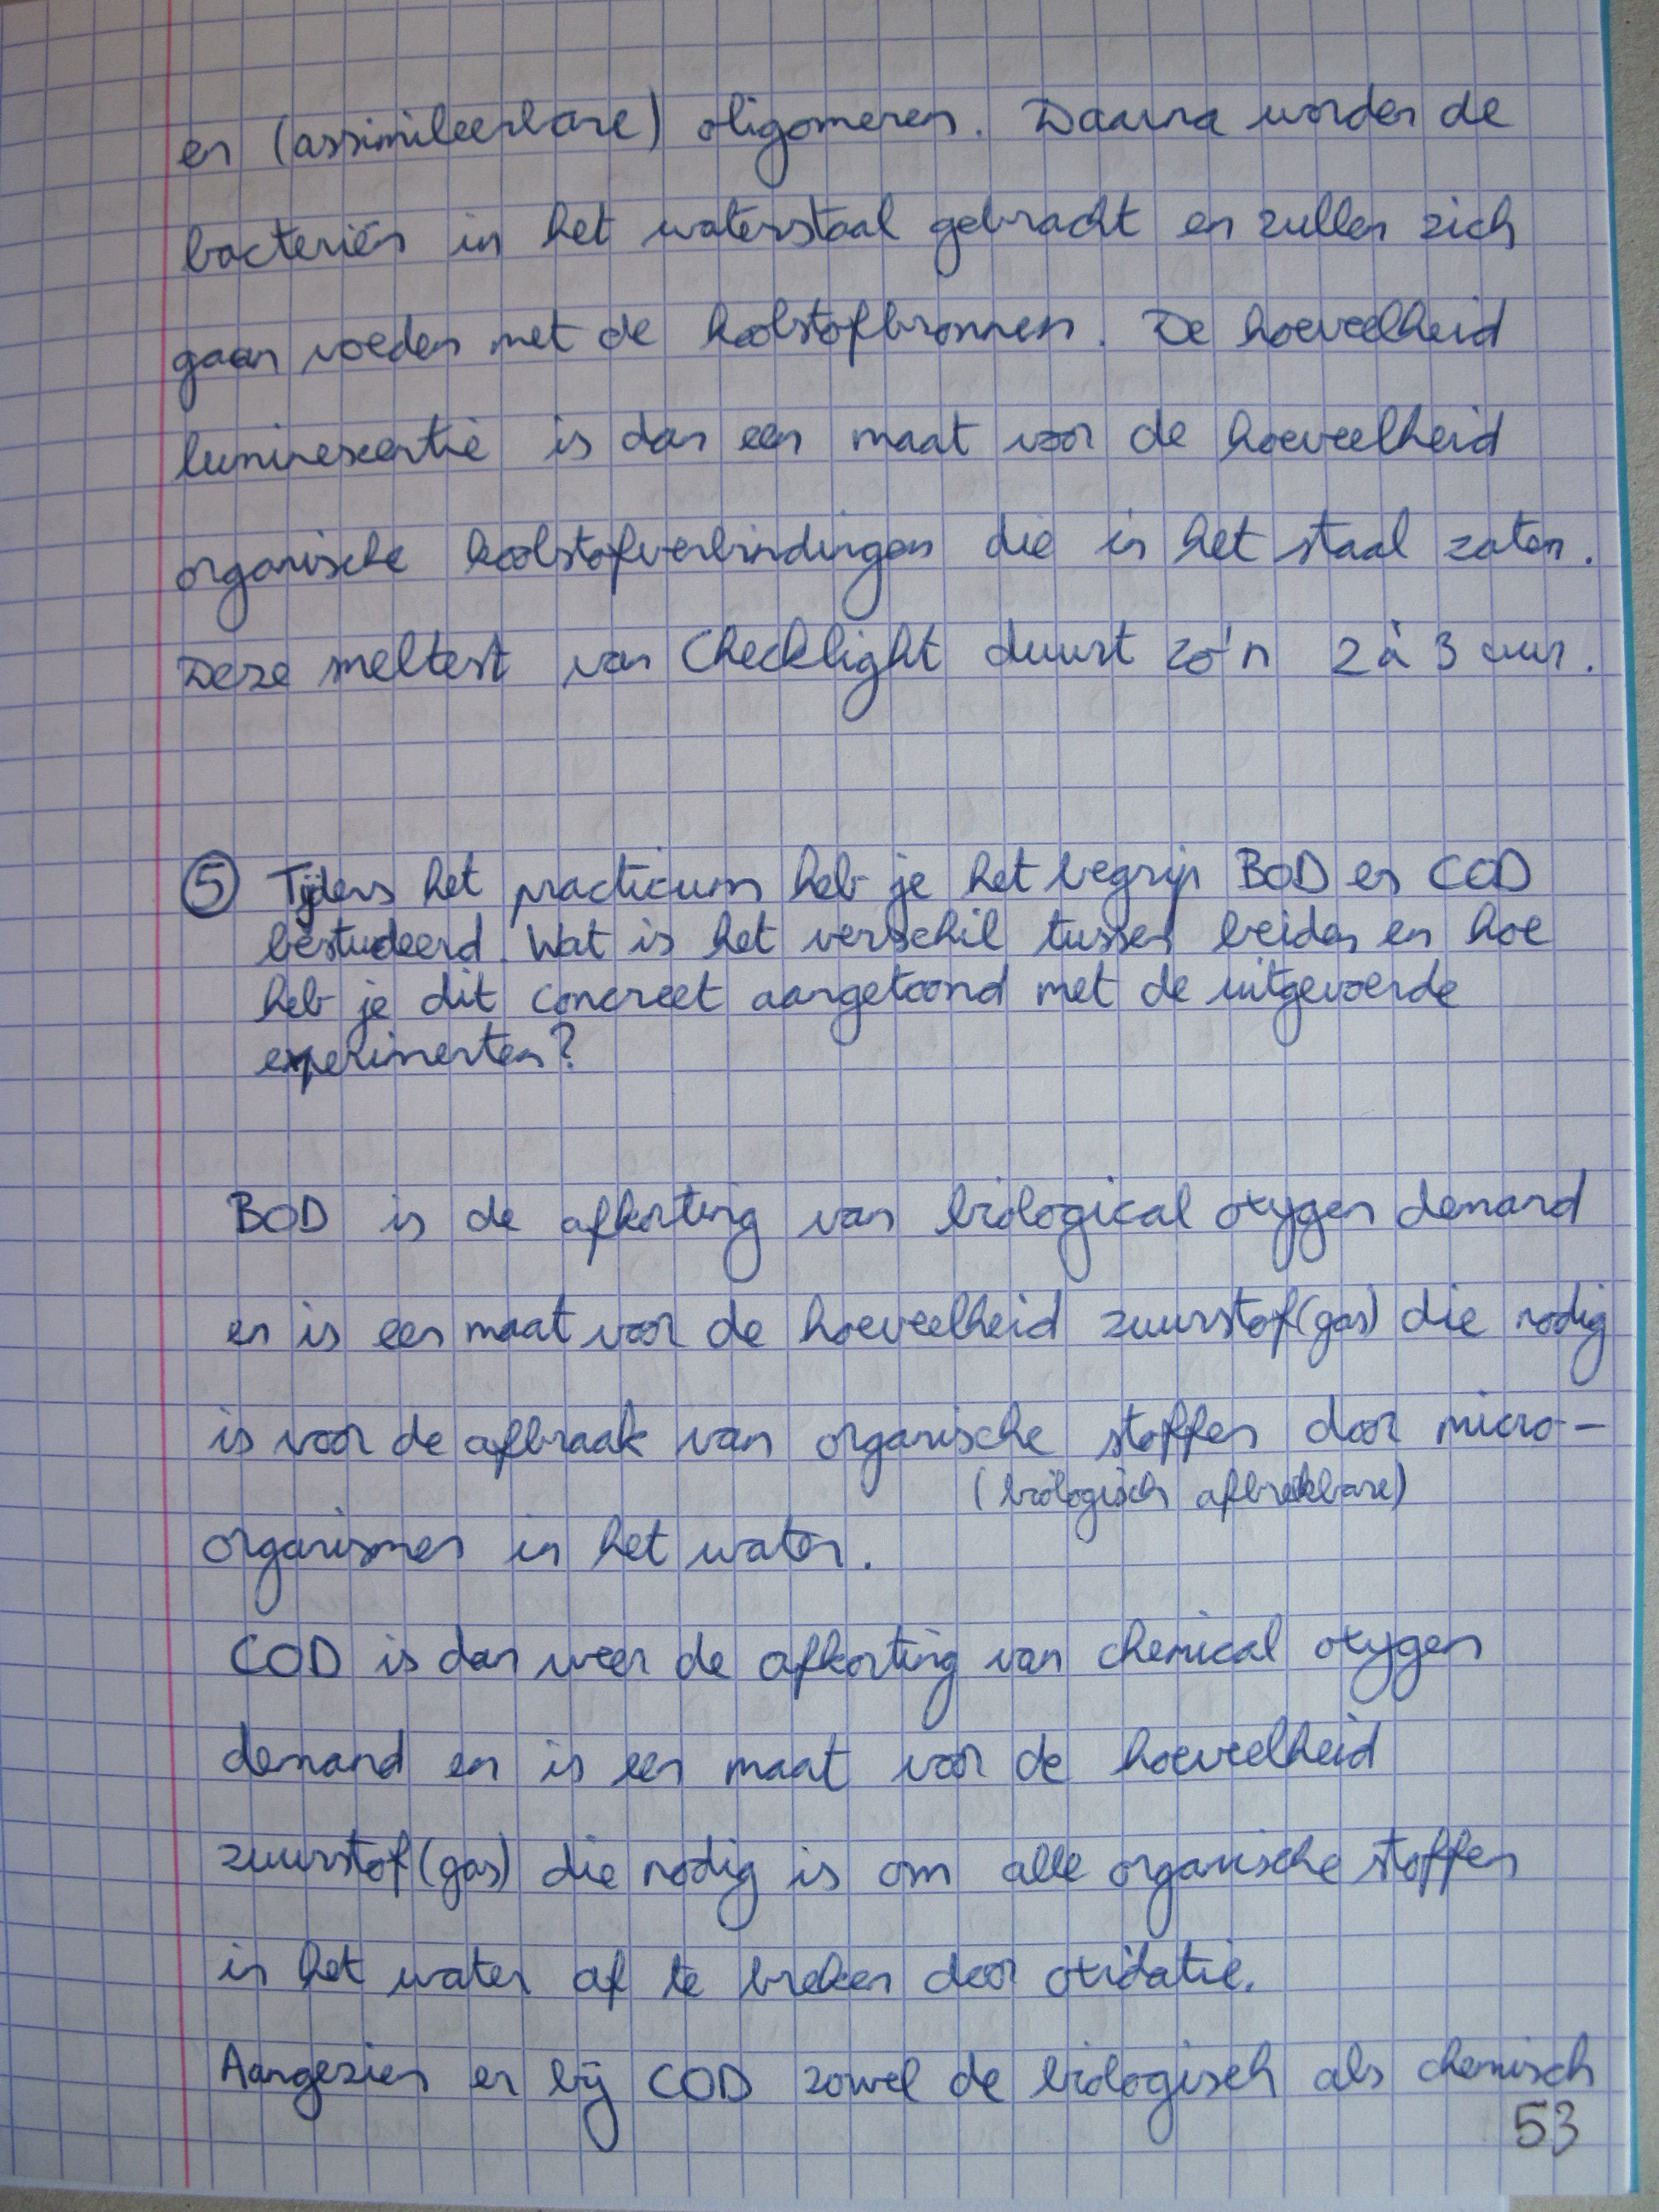 en (assimileerbare) oligomeren. Daarna worden de
bacteriën in het waterstaal gebracht en zullen zich
gaan voeden met de koolstofbronnen. De hoeveelheid
luminescentie is dan een maat voor de hoeveelheid
organische koolstofverbindingen die in het staal zaten.
Deze sneltest van Checklight duurt zo'n 2 à 3 uur.
5 Tijdens het practicum heb je het begrip BOD en COD
bestudeerd. Wat is het verschil tussen beiden en hoe
heb je dit concreet aangetoond met de uitgevoerde
experimenten?
BOD is de afkorting van biological oxygen demand
en is een maat voor de hoeveelheid zuurstof(gas) die nodig
is voor de afbraak van organische stoffen door micro-
(biologisch afbreekbare)
organismen in het water.
COD is dan weer de afkorting van chemical oxygen
demand en is een maat voor de hoeveelheid
zuurstof(gas) die nodig is om alle organische stoffen
in het water af te breken door oxidatie.
Aangezien er bij COD zowel de biologisch als chemisch
53